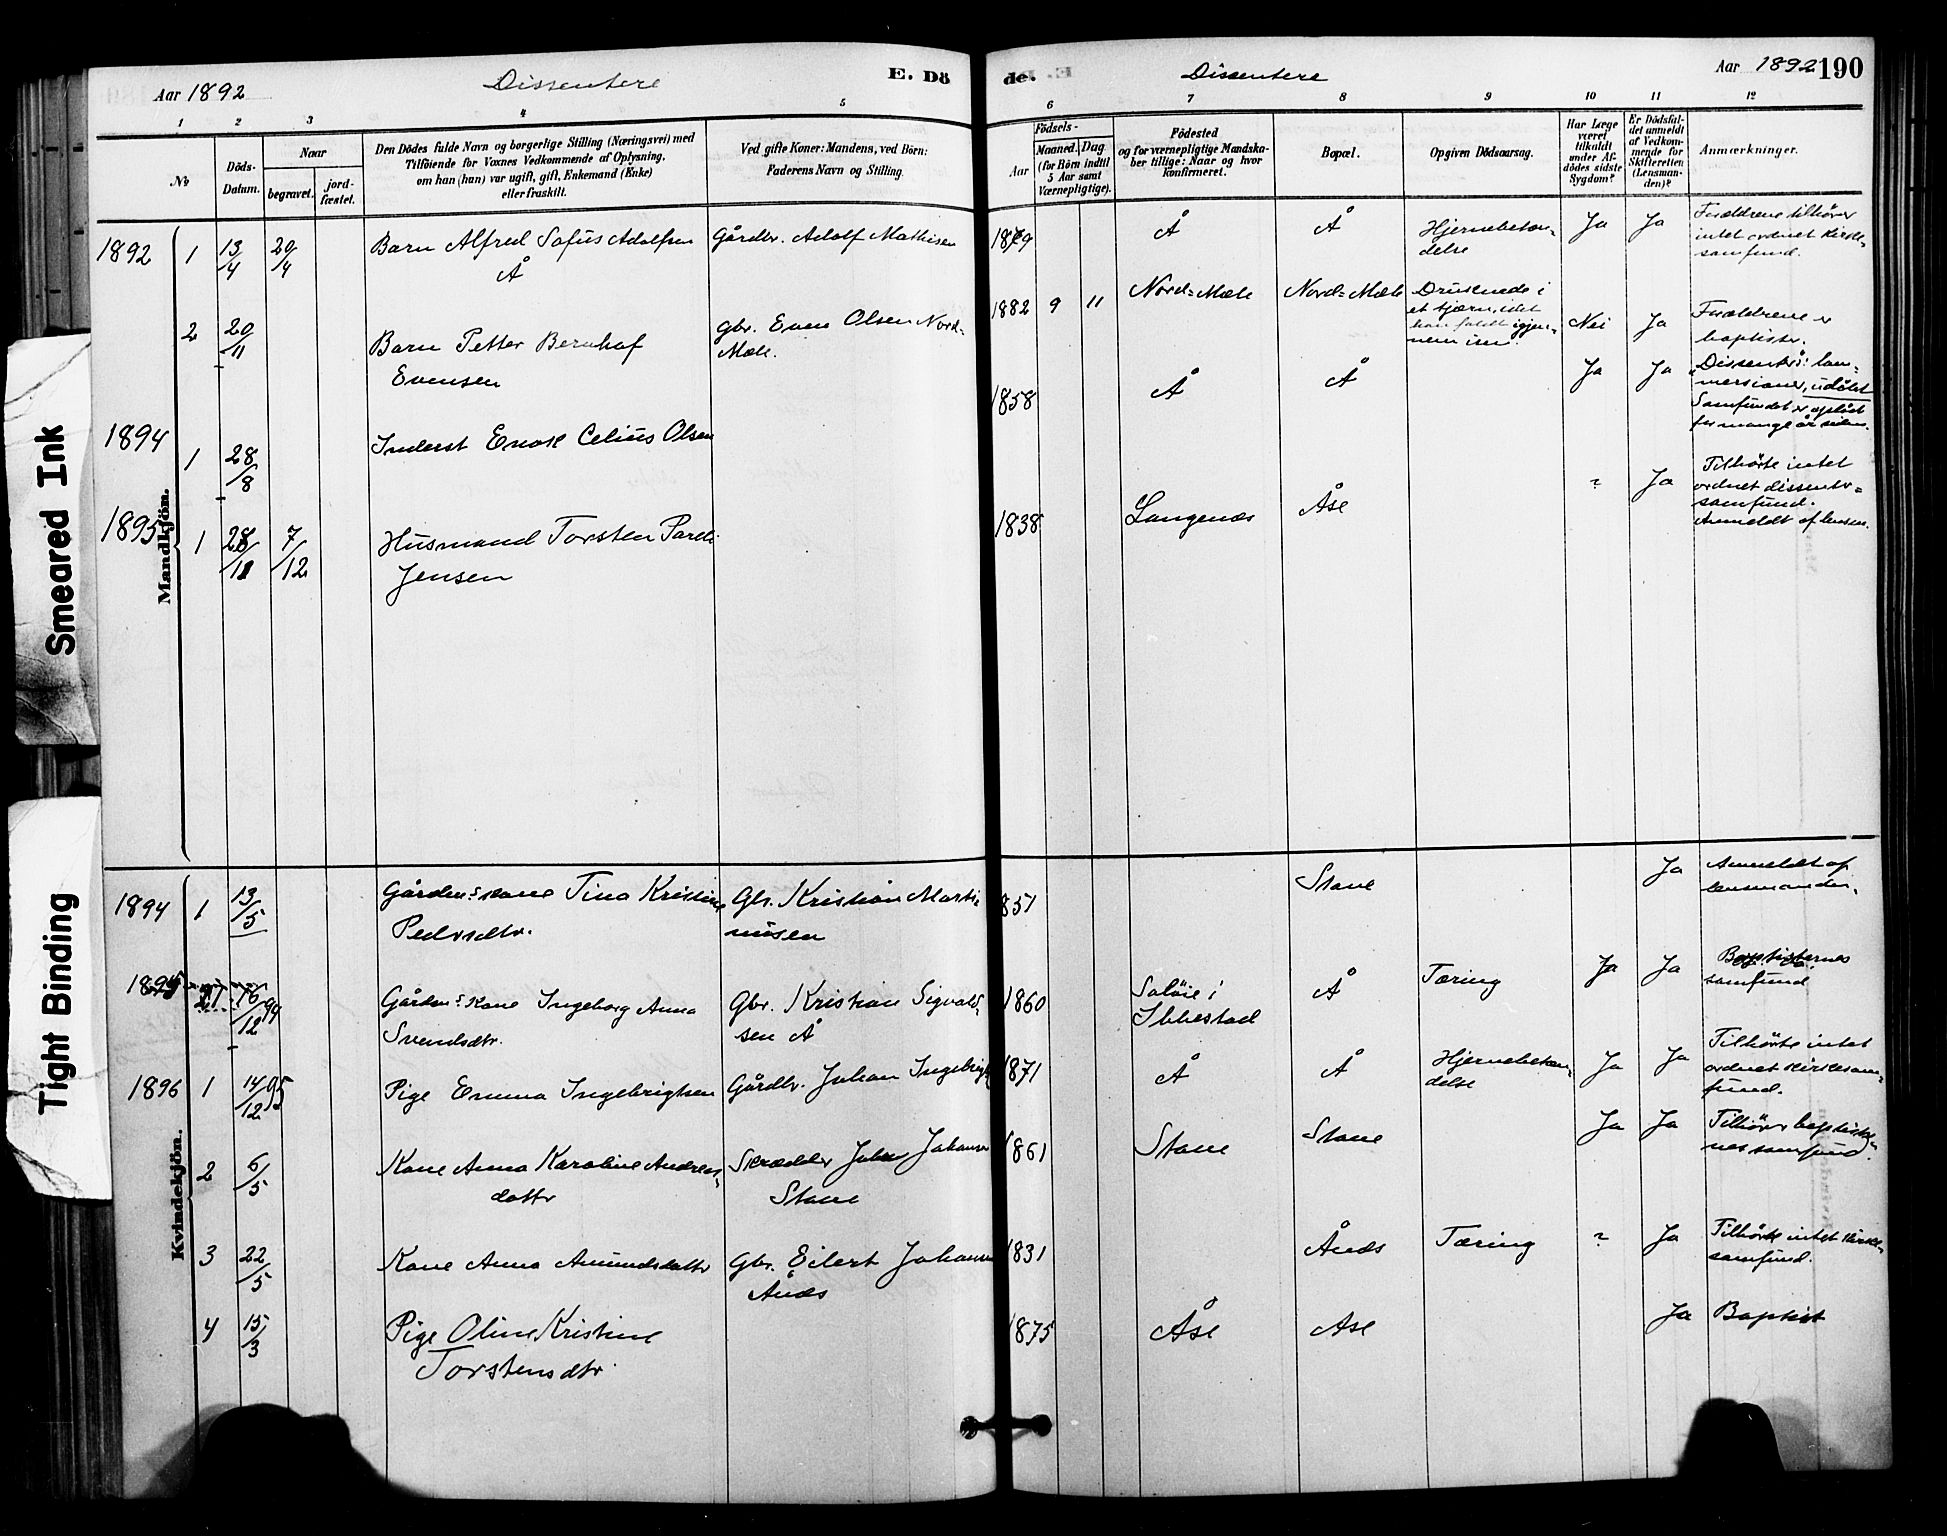 Smeared Ink
Tight Binding
Aar 1892
Dissentere
E. Dö
de.
Dissentere
Aar 1892
190
1 2 3 4 5
6 7 8 9 10 11 12
No
Döds-
Datum.
Naar
begravet.
jord-
fæstet.
Den Dödes fulde Navn og borgerlige Stilling (Næringsvei) med
Tilföiende for Voxnes Vedkommende af Oplysning,
om han (hun) var ugift, gift, Enkemand (Enke)
eller fraskilt.
Ved gifte Koner: Mandens, ved Börn:
Faderens Navn og Stilling.
Födsels-
Aar
Maaned. Dag
(for Börn indtil
5 Aar samt
Værnepligtige).
Födested
og for værnepligtige Mandska-
ber tillige: Naar og hvor
konfirmeret.
Bopæl.
Opgiven Dödsaarsag.
Har Læge
været
tilkaldt
under Af-
dödes sidste
Sygdom?
Er Dödsfal-
det anmeldt
af Vedkom-
mende for
Skifteretten
(Lensman-
den)?
Anmærkninger.
Mandkjön.
1892 1 13/4 20/4 Barn Alfred Sofus Adolfsen Gårdbr. Adolf Mathisen
Å
Å Å Hjernebetæn-
delse
Ja Ja
Forældrene tilhører
intet ordnet kirke-
samfund.
2 20/11 Barn Petter Bernhof
Evensen
Gbr. Even Olsen Nord-
Mæle.
1882 9 11 Nord-Mæle Nord-Mæle Druknede i
et tjærn, idet
han faldt igjen-
nem isen.
Nei Ja
Forældrene er
baptister.
1894 1 28/8 Inderst Enok Celius Olsen
1858 Å Å Ja Ja
Samfundet er opløst
for mange år siden.
1895 1 28/11 7/12 Husmand Torsten
Jensen
1838 Langenes Åse ? Ja
Tilhørte intet
ordnet dissenter-
samfund.
Anmeldt af lensm.
Kvindekjön.
1894 1 13/5 Gårdm.s kone Tina Kristine
Pedersdtr.
Gbr. Kristian Marti-
nusen
1851 Stave Ja
Anmeldt af
lensmanden.
16/12 94 Gårdm.s kone Ingeborg Anna
Svendsdtr.
Gbr. Kristian Sigvald-
sen Å
1860 Saløie i
Ibbestad
Å Tæring Ja Ja
Baptisternes
samfund
1896 1 14/12 95 Pige Emma Ingebrigtsen Gårdbr. Johan Ingebrigts
1871 Å Å Hjernebetæn-
delse
Ja Ja
Tilhørte intet
ordnet kirkesam-
fund.
2 6/5 Kone Anna Karoline Andreas-
dattr
Skrædder Johan Johansen
Stave
1861 Stave Stave Ja Ja
Tilhører baptister-
nes samfund.
3 22/5 Kone Anna Amundsdattr Gbr. Eilert Johansen
Ånds
1831 Ånds Tæring ? Ja
Tilhørte intet kirke-
samfund.
4 15/3 Pige Oline Kristine
Torstensdtr.
1875 Åse Åse Ja Baptist